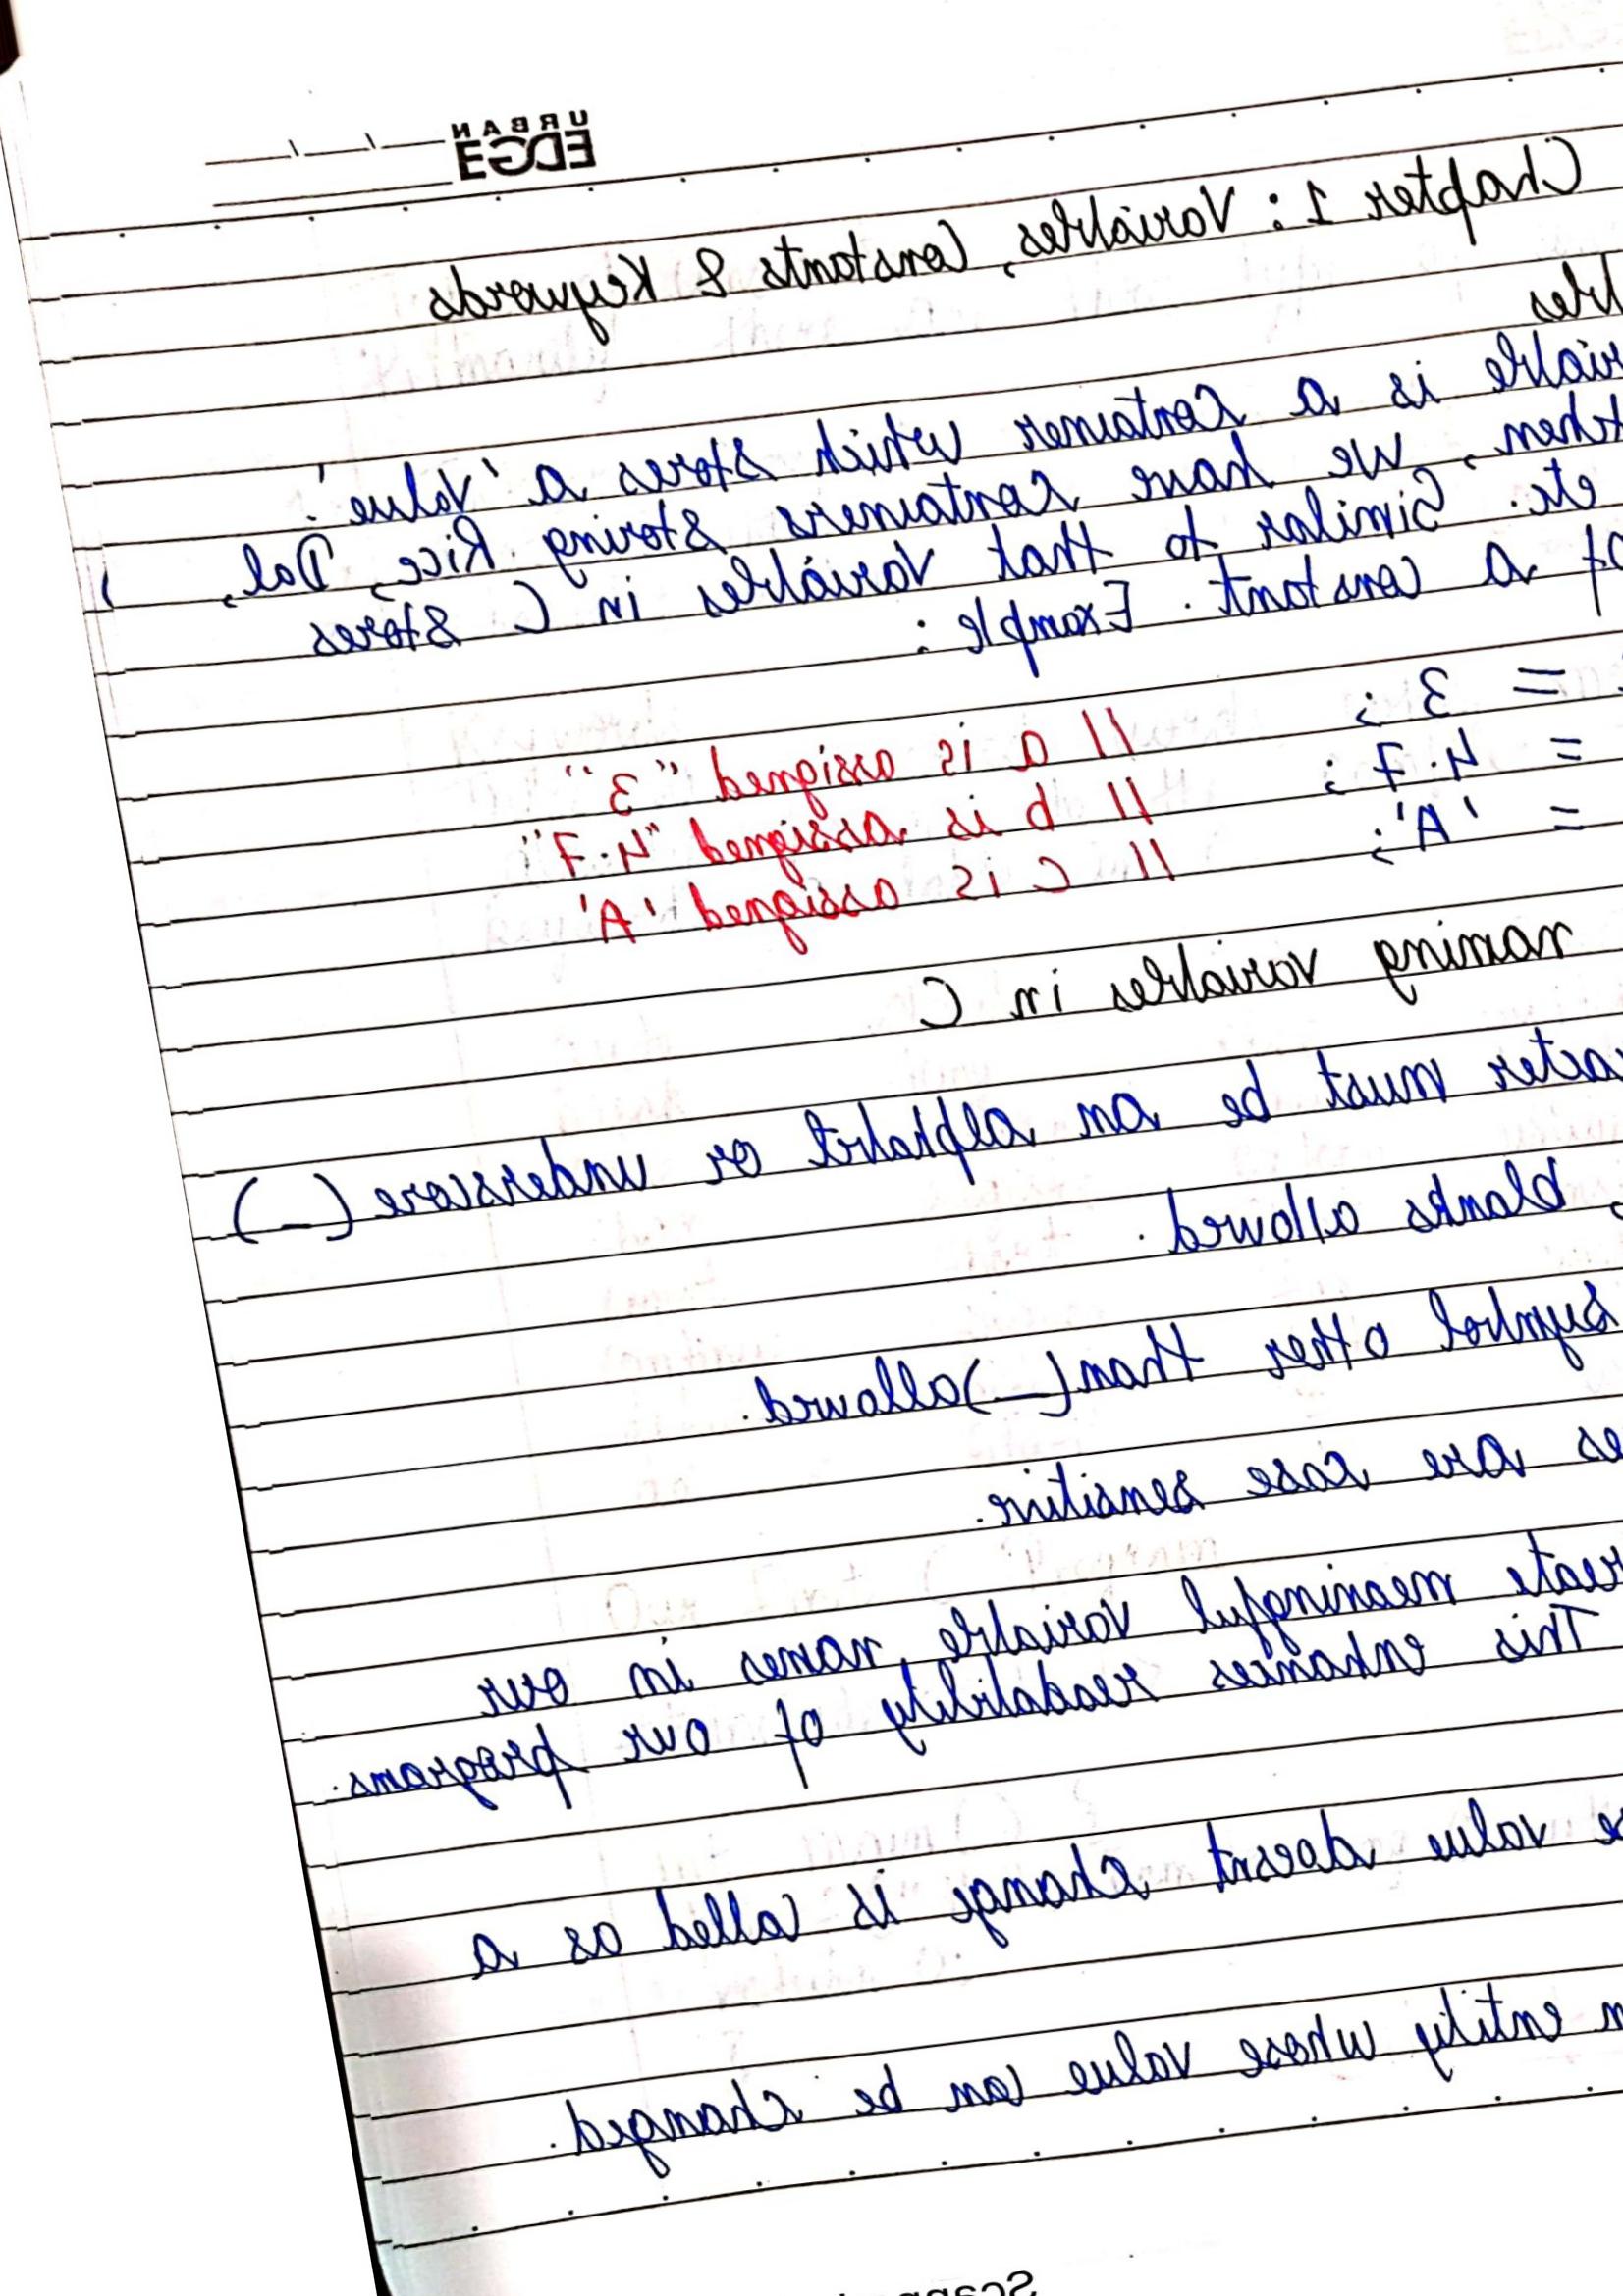 URBAN
EDGE
Chapter 1: Variables, Constants & Keywords
bles
riable is a container which stores a 'Value'.
tchen, we have containers storing Rice, Dal,
etc. Similar to that Variables in C stores
of a constant. Example:
= 3; // a is assigned "3"
= 4.7; // b is assigned "4.7"
= 'A'; // c is assigned 'A'
naming variables in C
acter must be an alphabet or underscore (_)
, blanks allowed.
symbol other than (_) allowed.
es are case sensitive.
reate meaningful variable names in our
This enhances readability of our programs.
e value doesnt change is called as a
n entity whose value can be changed.